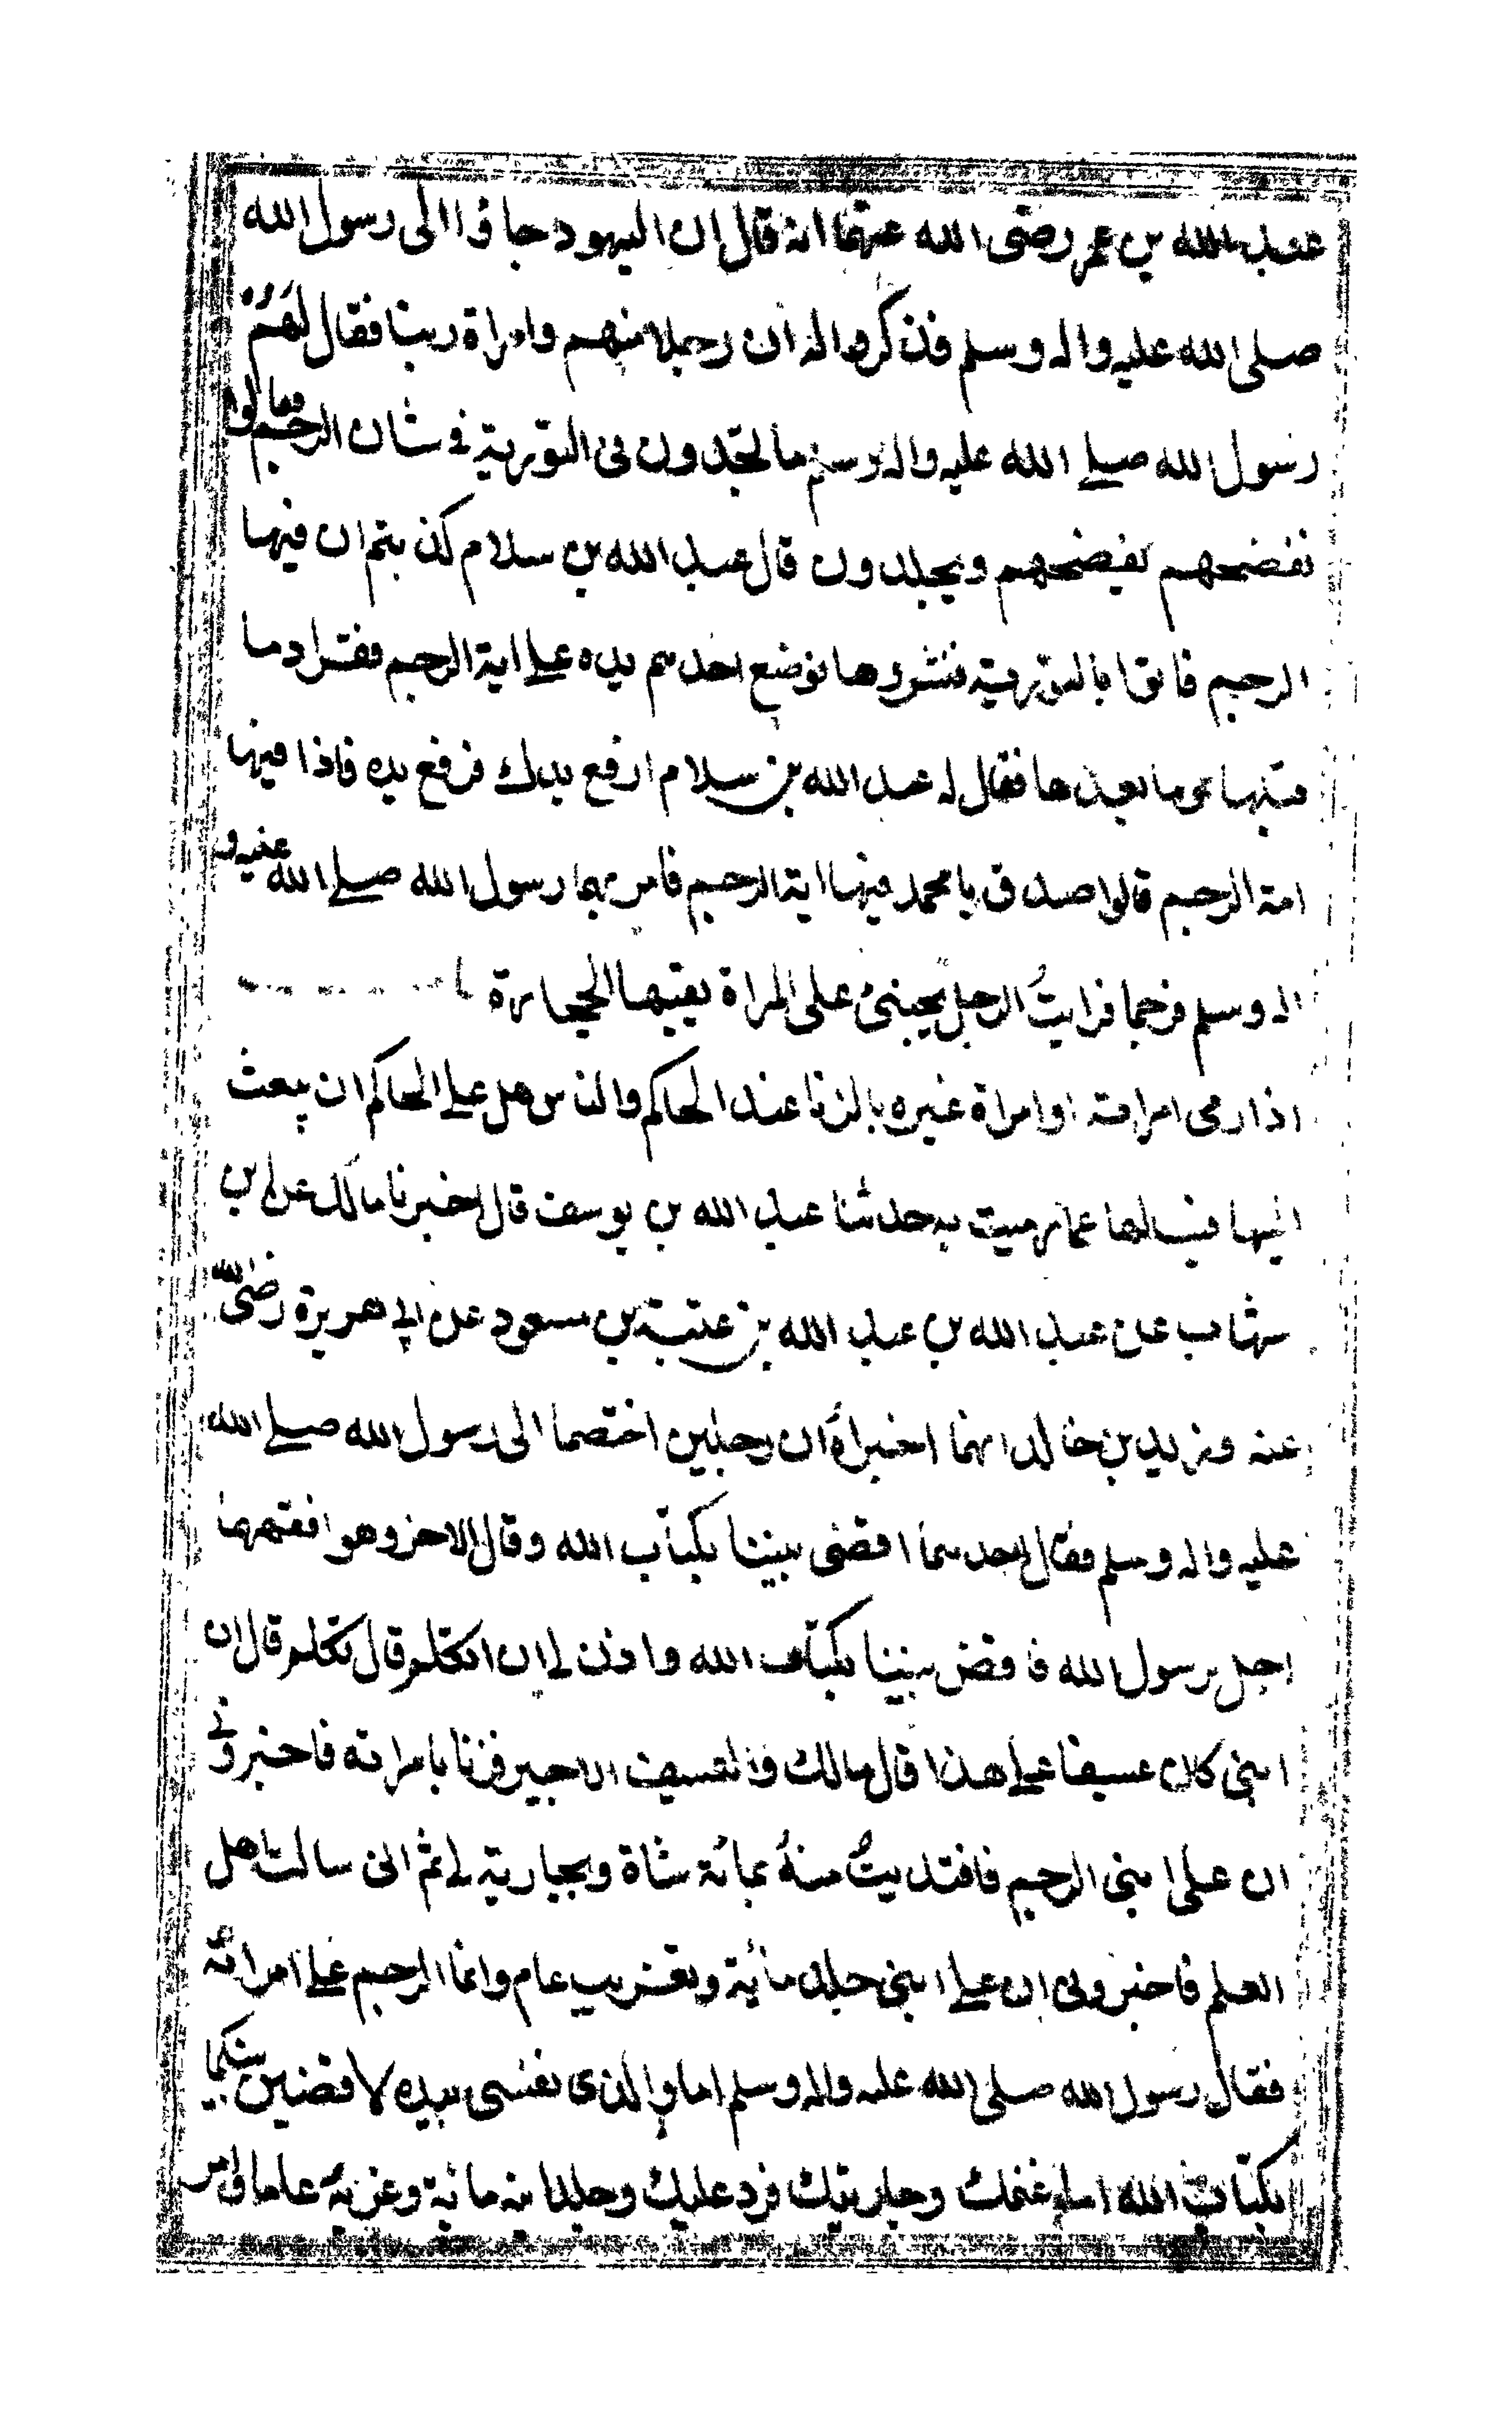 عبد الله بن عمر رضى الله عنهما انه قال ان اليهود جاؤا الى رسول الله
صلى الله عليه واله وسلم فذكروا له ان رجلا منهم وامراة زنيا فقال لهم
رسول الله صلے الله عليه واله وسلم ما تجدون فى التورية فى شان الرجم فقالوا
نفضحهم نفضحهم ويجلدون قال عبد الله بن سلام كذبتم ان فيها
الرجم فاتوا بالتورية فنشروها فوضع احدهم يده على اية الرجم فقرا ما
قبلها وما بعدها فقال له عبد الله بن سلام ارفع يدك فرفع يده فاذا فيها
اية الرجم قالوا صدق يا محمد فيها اية الرجم فامر بهما رسول الله صلے الله عليه و
اله وسلم فرجما فرايتُ الرجل يحنى على المراة يقيها الحجارة
اذا رمى امراته او امراة غيره بالزنا عند الحاكم والناس هل على الحاكم ان يبعث
اليها فيسالها عما رميت به حدثنا عبد الله بن يوسف قال اخبرنا مالك عن ابن
شهاب عن عبد الله بن عبد الله بن عتبة بن مسعود عن ابى هريرة رضى الله
عنه وزيد بن خالد انهما اخبراه ان رجلين اختصما الى رسول الله صلے الله
عليه واله وسلم فقال احدهما اقضى بيننا بكتاب الله وقال الاخر وهو افقههما
اجل يرسول الله فاقض بيننا بكتاب الله واذن لى ان اتكلم قال تكلم قال ان
ابنى كان عسيفا على هذا قال مالك والعسيف الاجير فزنا بامراته فاخبرونى
ان على ابنى الرجم فافتديتُ منهُ بمائة شاة وبجارية لى ثم انى سالت اهل
العلم فاخبرونى ان على ابنى جلد مائة وتغريب عام وانما الرجم على امراته
فقال رسول الله صلى الله عليه واله وسلم اما والذى نفسى بيده لاقضين بينكما
بكتاب الله اما غنمك وجاريتك فرد عليك وجلد ابنه مائة وغربه عاما وامر